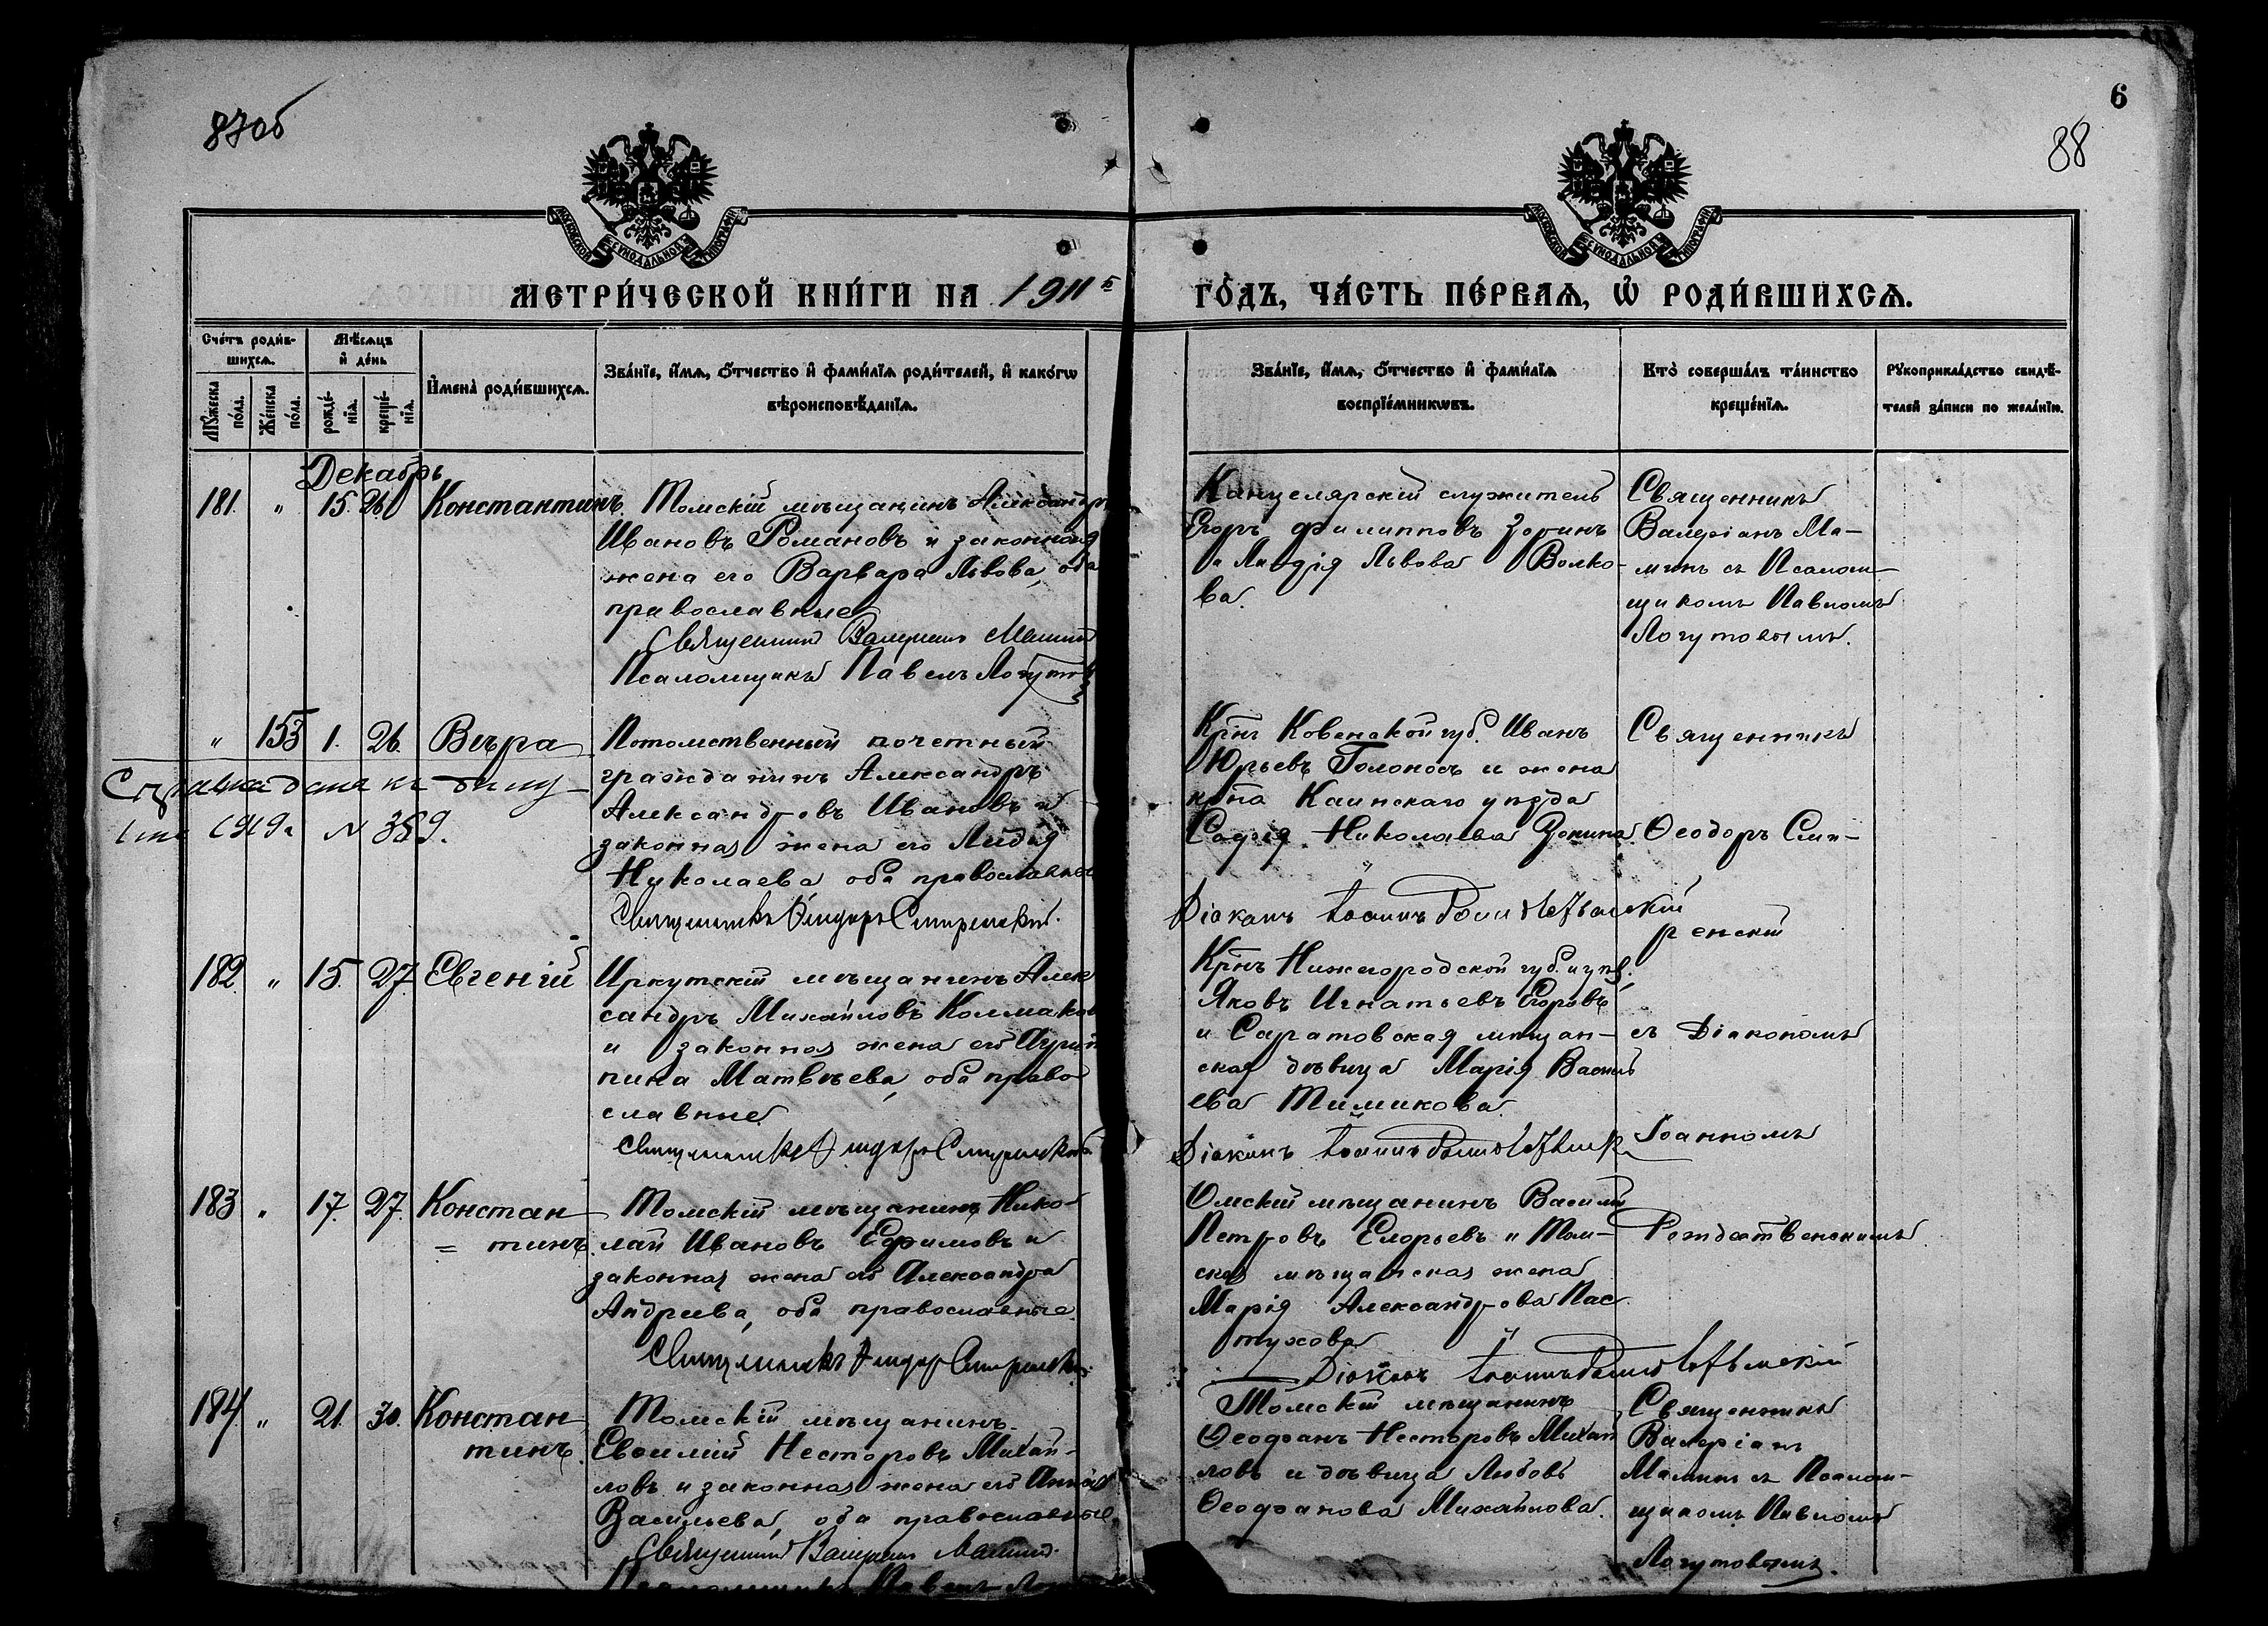 87об
6
88
МОСКОВСКОЙ СѴНОДАЛЬНОЙ ТИПОГРАФІИ
МОСКОВСКОЙ СѴНОДАЛЬНОЙ ТИПОГРАФІИ
МЕТРИ́ЧЕСКОЙ КНИ́ГИ НА 1911й
ГО́ДЪ, ЧА́СТЬ ПЕ́РВАѦ, Ѡ҆ РОДИ́ВШИХСѦ.
Сче́тъ роди́в-
шихсѧ.
Мѣ́сѧцъ
и҆ де́нь
Мꙋ́жеска
по́ла.
Же́нска
по́ла.
рожде́-
нїѧ.
креще́-
нїѧ.
И҆мена̀ роди́вшихсѧ.
Зва́нїе, и҆́мѧ, ѻ҆́тчество и҆ фами́лїѧ роди́телей, и҆ како́гѡ
вѣроисповѣ́данїѧ.
Зва́нїе, и҆́мѧ, ѻ҆́тчество и҆ фами́лїѧ
воспрїе́мникѡвъ.
Кто̀ соверша́лъ та́инство
креще́нїѧ.
Рꙋкоприкла́дство свидѣ́-
телей за́писи по жела́нїю.
Декабрь
181. " 15. 26. Константинъ.
Томскій мѣщанинъ Александръ
Ивановъ Романовъ и законная
жена его Варвара Львова, оба
православные
Священникъ Валеріанъ Маминъ
Псаломщикъ Павелъ Логутовъ
Канцелярскій служитель
Егоръ Филипповъ Зоринъ
и Лидія Львова Волко-
ва.
Священникъ
Валеріанъ Ма-
минъ съ Псалом-
щикомъ Павломъ
Логутовымъ.
" 153 1. 26. Вѣра
Справка дана къ
1919г N 359.
Потомственный почетный
гражданинъ Александръ
Александровъ Ивановъ и
законная жена его Лидія
Николаева, оба православные
Священникъ Ѳеодоръ Смиренскій.
Крнъ Ковенской губ. Иванъ
Юрьевъ Голоносъ и жена
крна Каинскаго уѣзда
Софія Николаева Зонина.
Діаконъ Іоаннъ Рождественскій
Священникъ
Ѳеодоръ Сми-
ренскій
182. " 15. 27. Евгеній
Иркутскій мѣщанинъ Алек
сандръ Михайловъ Колмаков
и законная жена его Агрип
пина Матвѣева, оба право
славные
Священникъ Ѳеодоръ Смиренскій
Крнъ Нижегородской губ. и уѣз.
Яковъ Игнатьевъ Егоровъ
и Саратовская мѣщан-
ская дѣвица Марія Василь
ева Тимикова.
Діаконъ Іоаннъ Рождественскій
съ Діакономъ
Іоанномъ
183 " 17. 27. Констан
= тинъ.
Томскій мѣщанинъ Нико-
лай Ивановъ Ефимовъ и
законная жена его Александра
Андреева, оба православные.
Священникъ Ѳеодоръ Смиренскій
Омскій мѣщанинъ Василій
Петровъ Егорьевъ и Том-
ская мѣщанская жена
Марія Александрова Пас
тухова
Діаконъ Іоаннъ Рождественскій
Рождественскимъ.
184. " 21. 30. Констан
тинъ.
Томскій мѣщанинъ
Евѳимій Несторовъ Михай-
ловъ и законная жена его Анна
Васильева, оба православные.
Священникъ Валеріанъ Маминъ.
Псаломщикъ Павелъ
Томскій мѣщанинъ
Ѳеофанъ Несторовъ Михай
ловъ и дѣвица Любовь
Ѳеофанова Михайлова.
Священникъ
Валеріанъ
Маминъ съ Псалом-
щикомъ Павломъ
Логутовымъ.